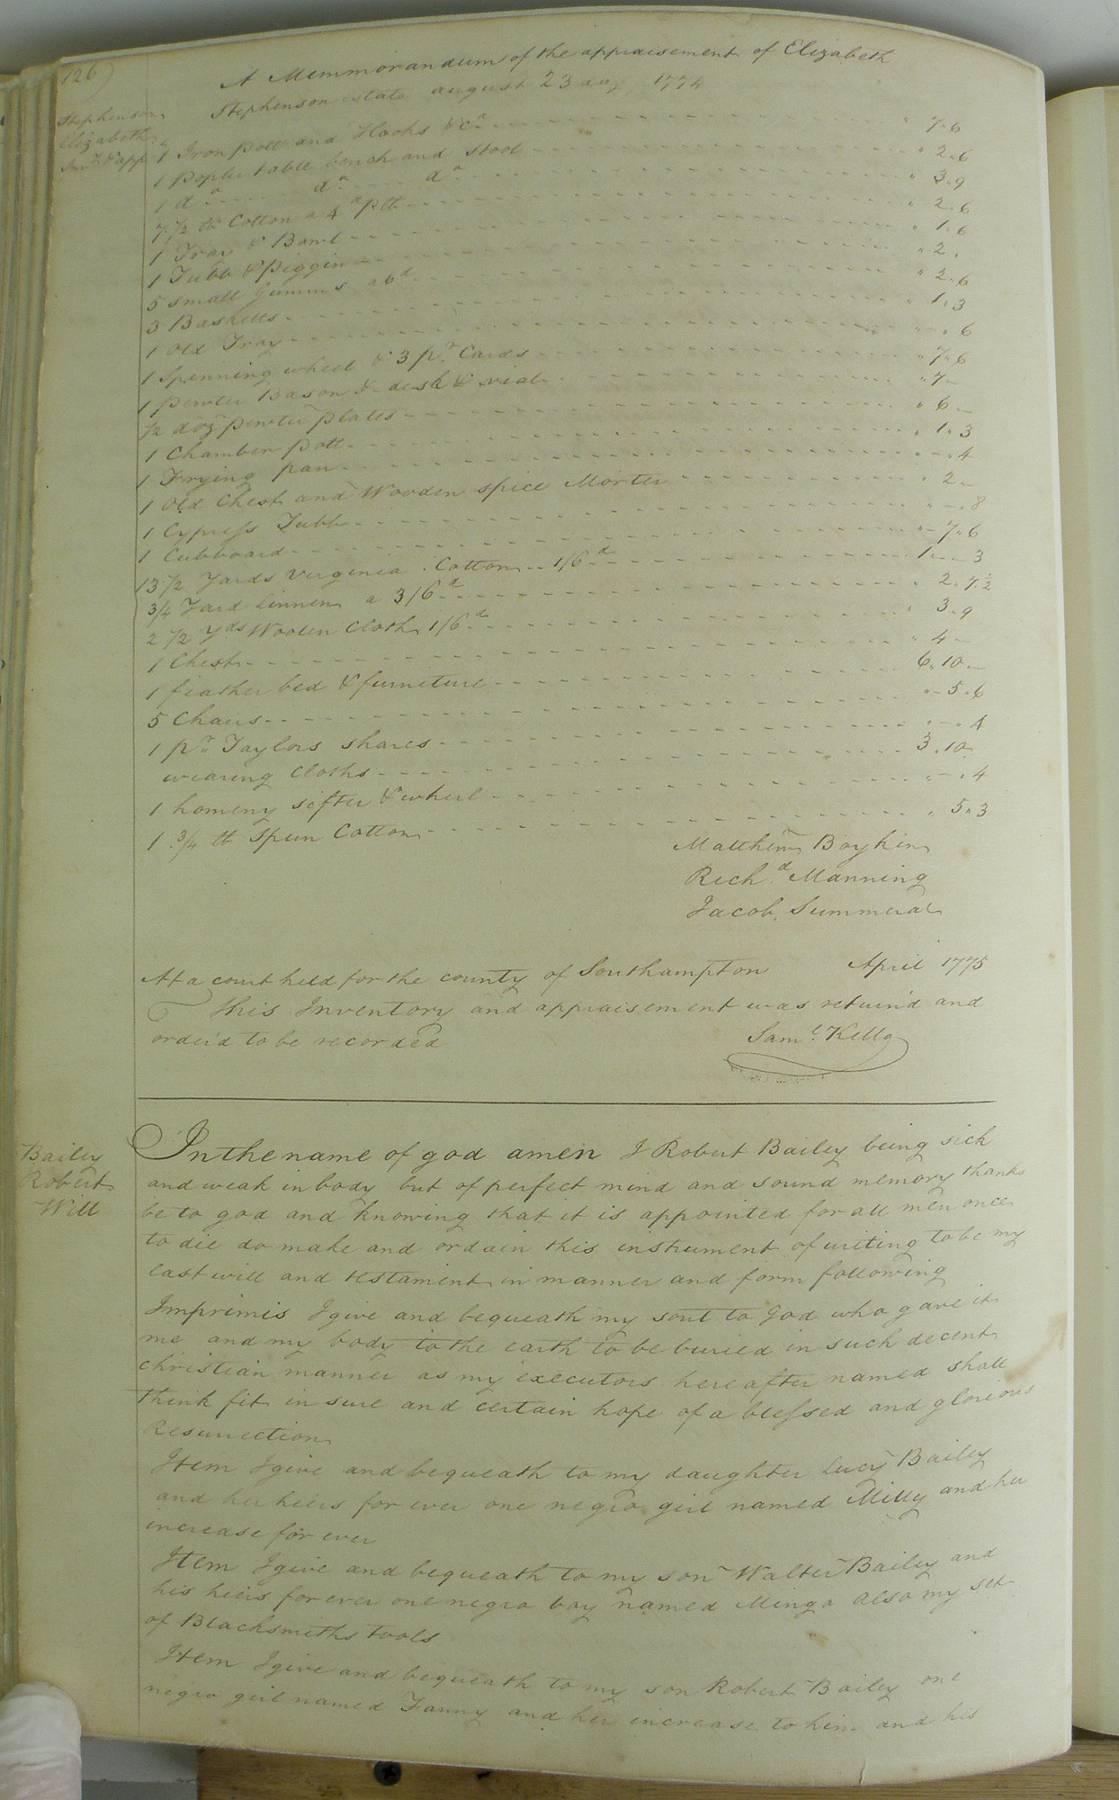 126)
A Memmorandum of the appraisement of Elizabeth
Stephenson estate august 23 day 1774
Stephenson
Elizabeth
Inv.t & app.t
1 Iron pott and Hooks &c.a " 7.6
1 Popler table bench and stool " 2.6
1 d.o d.o d.o " 3.9
7 1/2 lb Cotton a 4.d p lb " 2.6
1 Tray & Bowl " 1.6
1 Tubb & Piggin " 2.
5 small Gumms a 6.d " 2.6
3 Basketts " 1.3
1 old Tray " . 6
1 Spenning wheel & 3 p.r Cards " 7.6
1 pewter Bason & desh & vial " 7 -
1/2 doz pewter plates " 6 -
1 Chamber pott " 1.3
1 Frying pan " - . 4
1 old Chest and Wooden spice Morter " 2 -
1 Cypress Tubb " - . 8
1 Cubboard " - 7.6
13 1/2 Yards virginia Cotton 1/6.d 1 . - . 3
3/4 Yard linnen a 3/6.d " 2.7 1/2
2 1/2 Y.ds Woolen Cloth 1/6.d " 3.9
1 Chest " 4 -
1 feather bed & furneture 6.10 -
5 Chairs " - 5.6
1 p.r Taylors shares " - . 4
wearing Cloths 3.10
1 homeny sifter & wheel " - . 4
1 3/4 lb Spun Cotton " 5.3
Matthew Boykin
Rich.d Manning
Jacob Summeral
At a court held for the county of Southampton April 1775
This Inventory and appraisement was return'd and
order'd to be recorded Sam.l Kello
Bailey
Robert
Will
In the name of god amen I Robert Bailey being sick
and weak in body but of perfect mind and sound memory thanks
be to god and knowing that it is appointed for all men once
to die do make and ordain this instrument of writing to be my
last will and testament in manner and form following
Imprimis I give and bequeath my soul to God who gave it
me and my body to the earth to be buried in such decent
christian manner as my executors hereafter named shall
think fit in sure and certain hope of a blessed and glorious
Resurrection
Item I give and bequeath to my daughter Lucy Bailey
and her heirs for ever one negro girl named Milly and her
increase for ever
Item I give and bequeath to my son Walter Bailey and
his heirs for ever one negro boy named Mingo also my set
of Blacksmiths tools
Item I give and bequeath to my son Robert Bailey one
negro girl named Fanny and her increase to him and his